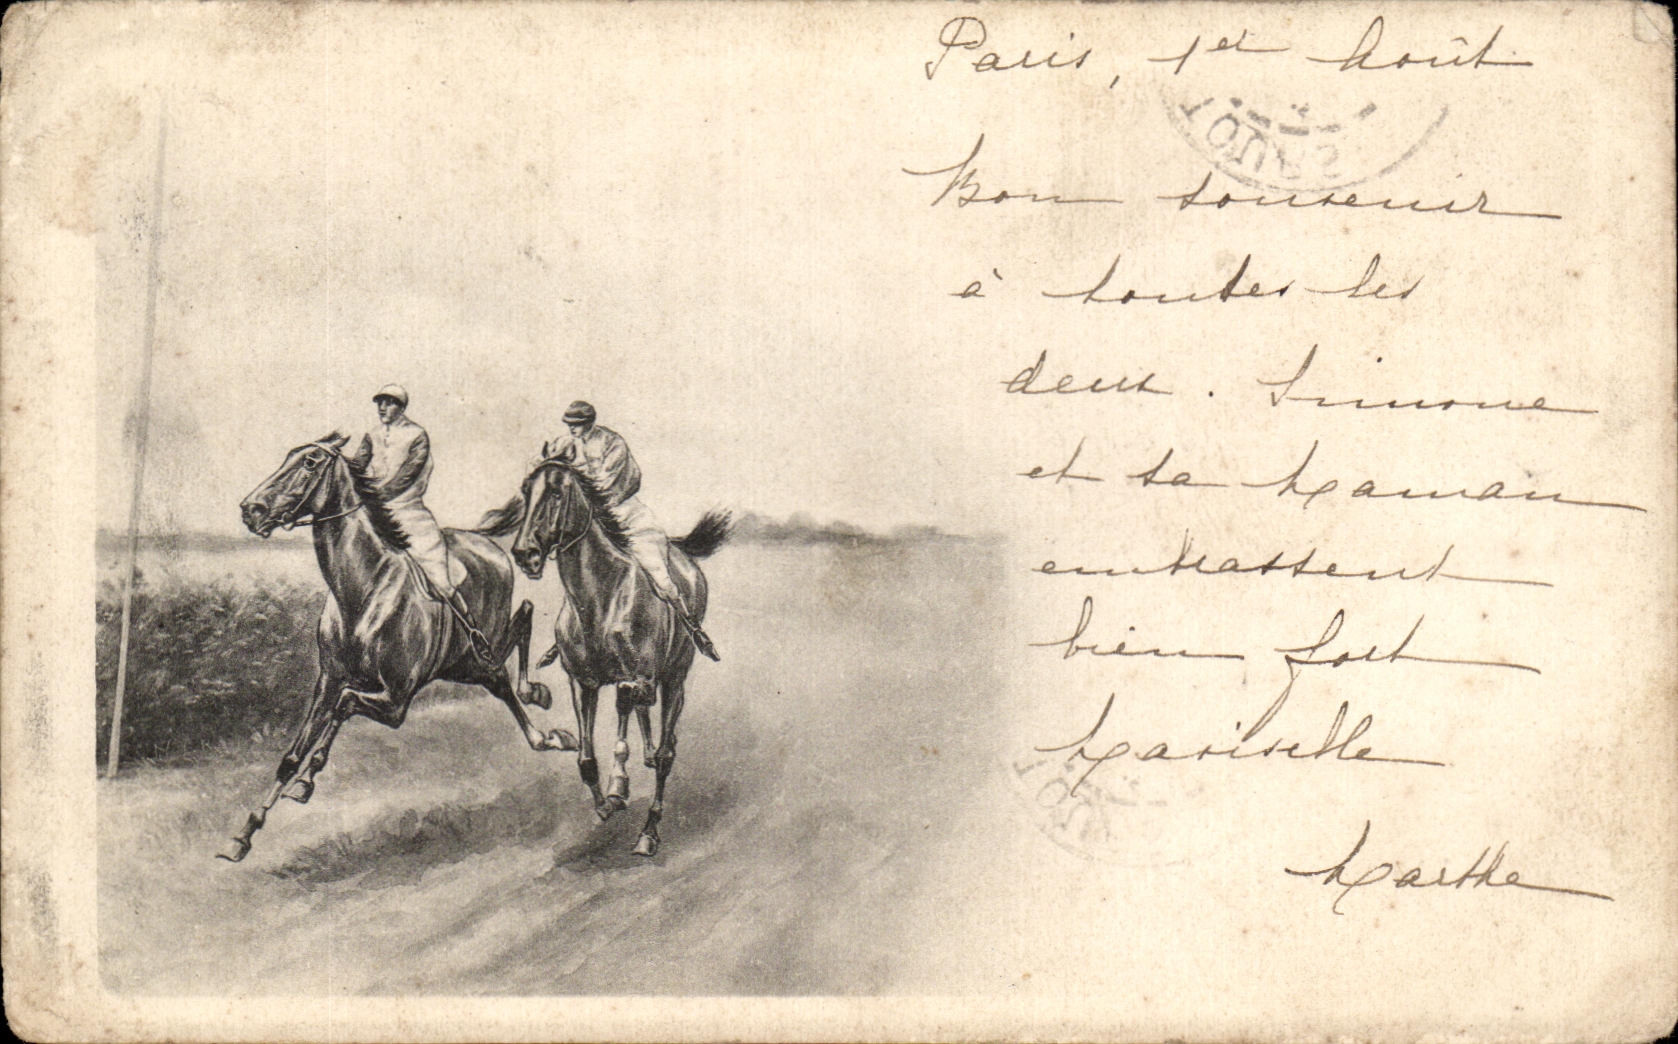 Paris, 1er Août
Bon souvenir
à toutes les
deux. Simone
et sa Maman
embrassent
bien fort
Mariselle
Marthe